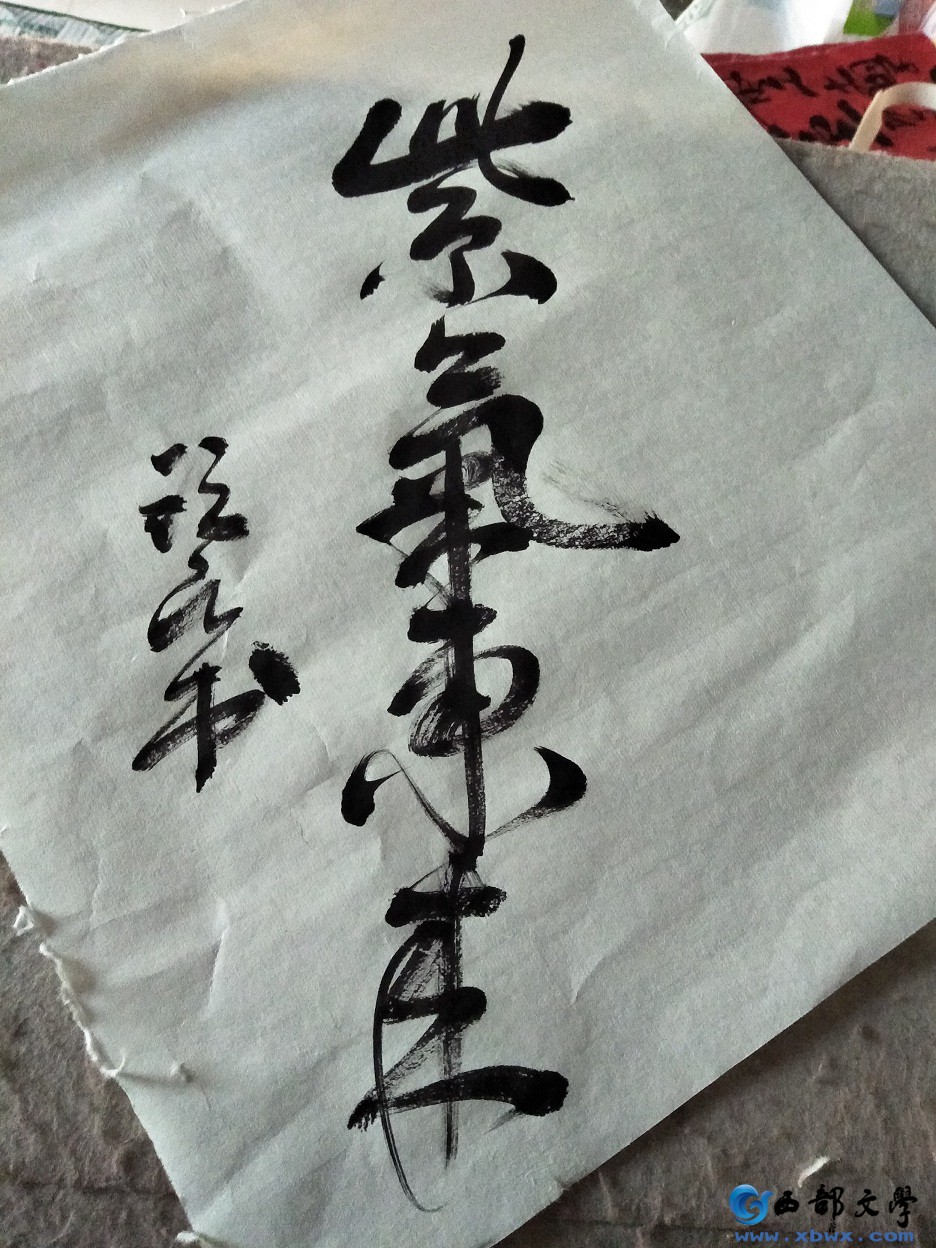 紫氣東来
书
西部文學
www.xbwx.com